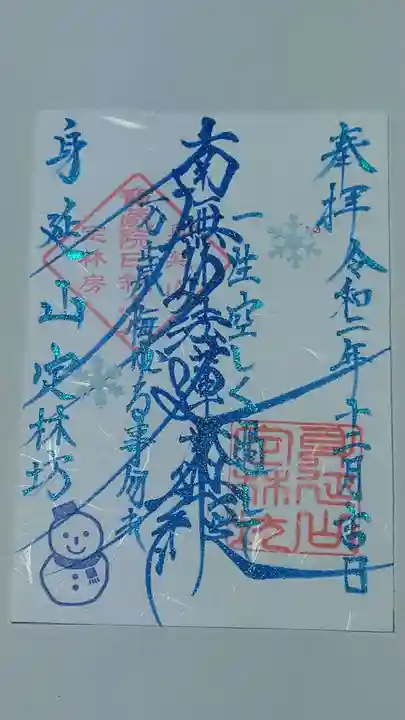 奉拝 令和二年十二月吉日
一生空しく過して
南無妙法蓮華経
万歳悔ゆる事勿れ
身延山定林坊